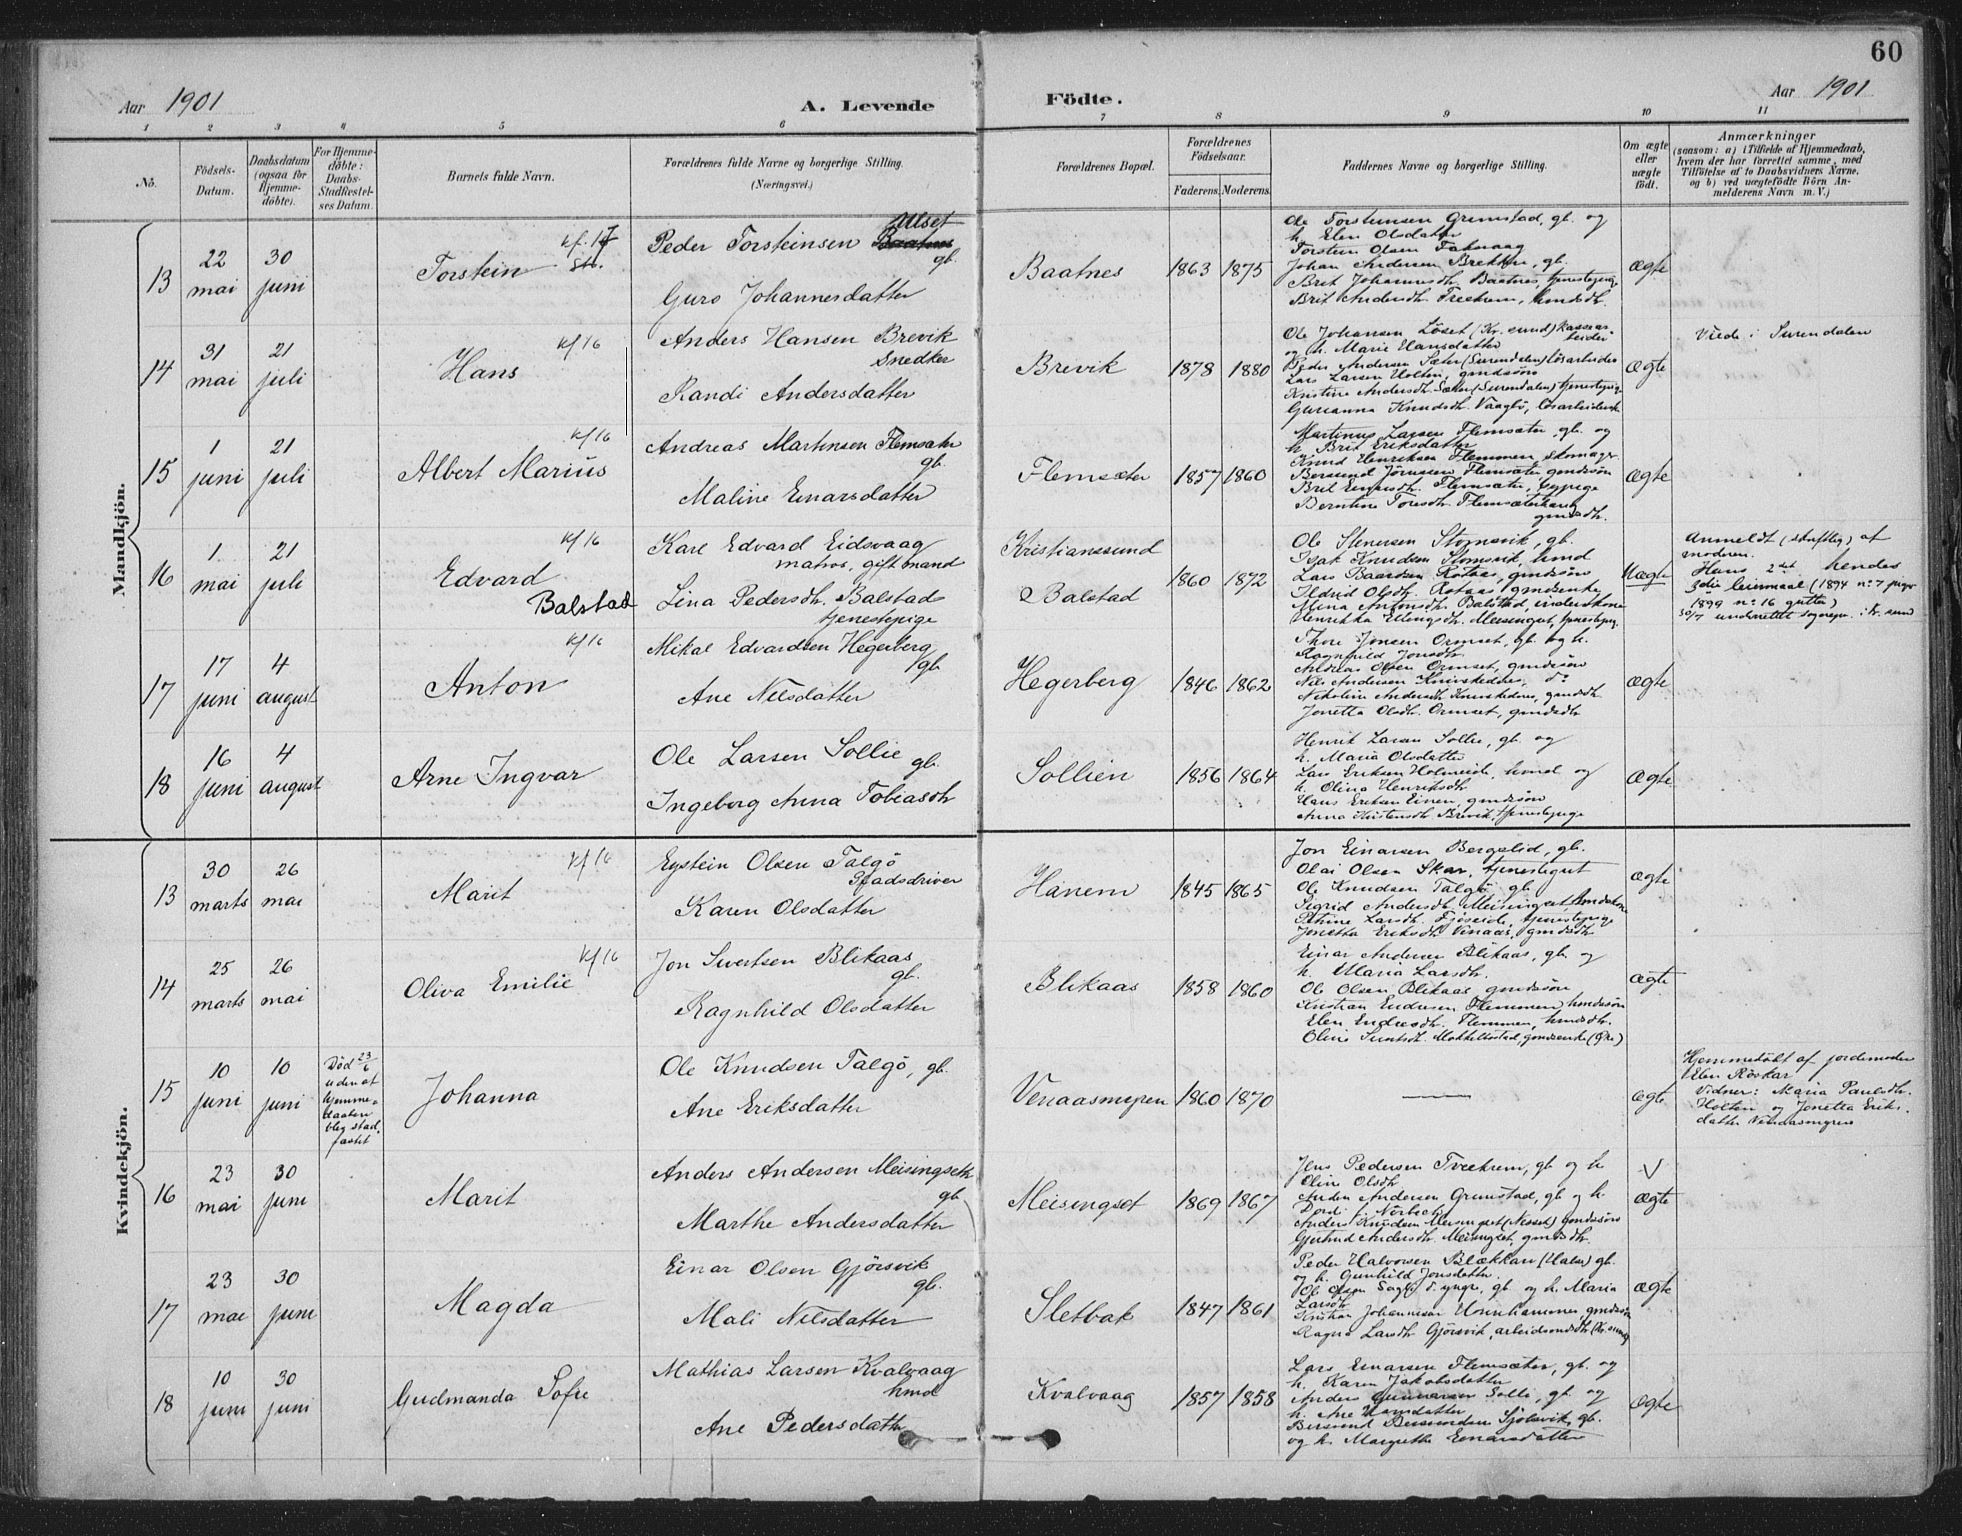 60
Aar 1901
A. Levende
Födte.
Aar 1901
1 2 3 4 5 6 7 8 9 10 11
No.
Födsels-
Datum.
Daabsdatum
(ogsaa for
Hjemme-
döbte).
For Hjemme-
döbte:
Daabs-
Stadfæstel-
ses Datum.
Barnets fulde Navn.
Forældrenes fulde Navne og borgerlige Stilling.
(Næringsvei.)
Forældrenes Bopæl.
Forældrenes
Födselsaar.
Faderens. Moderens.
Faddernes Navne og borgerlige Stilling.
Om ægte
eller
uægte
födt.
Anmærkninger
(saasom: a) i Tilfælde af Hjemmedaab,
hvem der har forrettet samme, med
Tilföielse af to Daabsvidners Navne,
og b) ved uægtefödte Börn An-
melderens Navn m. V.)
Mandkjön.
13
22
mai
30
juni
Torstein
kf. 17
Peder Torsteinsen Baatnes
Ulset
gb.
Guro Johannesdatter
Baatnes
1863 1875
Ole Torsteinsen Grimstad, gb. og
h. Elen Olsdatter
Torstein Olsen
Johan Andersen Brekken, gb.
Brit Johannesdh. Baatnes, tjenestepige
Brit Andersdh. Treekrem, hmdsdh.
ægte
14
31
mai
21
juli
Hans
kf 16
Anders Hansen Brevik
Snedker
Randi Andersdatter
Brevik
1878 1880
Ole Johansen Löset (Kr.sund)
og h. Marie Hansdatter
Peder Andersen Sæter (Surendalen) lösarbeider
Lars Larsen Holten, gmdssön
Kristine Andersdh. Sæter (Surendalen) tjenestepige
Gurianna Knudsdh. Vaagbö, lösarbeiderske
ægte
Viede i Surendalen
15
1
juni
21
juli
Albert Marius
kf 16
Andreas Martinsen Flemsæter
gb.
Maline Einarsdatter
Flemsæter
1857 1860
Martinus Larsen Flemsæter, gb. og
h. Brit Eriksdatter
Knud Henriksen Flemmen, skomager
Bersvend Jörnsen Flemsæter gmdssön
Brit Einarsdh. Flemsæter,
Berntine Toresdh. Flemsæterhaug
gmdsdh.
ægte
16
1
mai
21
juli
Edvard
Balstad
kf 16
Karl Edvard Eidsvaag
matros, gift mand
Lina Pedersdh. Balstad
tjenestepige
Kristianssund
Balstad
1860 1872
Ole Stenersen Stomsvik, gb.
Isak Knudsen Stomsvik, hmd
Lars Baardsen Rotaas, gmdssön
Ildrid Olsdh. Rotaas gmdsenke
Mina Antonsdh. Balstad, inderstkone
Henrikka Ellingsdh. Meisingset, tjenestepige
Uægte
Anmeldt (skriftlig) af
moderen.
Hans 2det hendes
3die leiermaal (1894 no 7 piger
1899 no 16 gutter)
30/7 underrettet sognepr. i Kr.sund
17
17
juni
4
august
Anton
kf 16
Mikal Edvardsen Hegerberg
gb.
Ane Nilsdatter
Hegerberg
1846 1862
Thore Jonsen Ormset, gb. og h.
Ragnhild Jonsdh.
Andreas Olsen Ormset, gmdssön
Nils Andersen
Nikoline Andersdh.
Jonetta Olsdh. Ormset, gmdsdh
ægte
18
16
juni
4
august
Arne Ingvar
Ole Larsen Sollie
gb.
Ingeborg Anna Tobiasdh
Sollien
1856 1864
Henrik Larsen Sollie, gb. og
h. Maria Olsdatter
Lars Eriksen Holmeide, hmd og
h. Olina Henriksdh
Hans Eriksen Einen, gmdssön
Anna Kristensdh. Brevik, tjenestepige
ægte
Kvindekjön.
13
30
marts
26
mai
Marit
kf 16
Eystein Olsen Talgö
Stadsdriver
Karen Olsdatter
Hanem
1845 1865
Jon Einarsen Bergslid, gb.
Olai Olsen Skar, tjenestegut
Ole Knudsen Talgö, gb.
Sigrid Andersdh. Meisingset hmdskone
Petrine Larsdh. Fjöseide, tjenestepige
Jonetta Eriksdh. Venaas, gmdsdh.
ægte
14
25
marts
26
mai
Oliva Emilie
kf 16
Jon Sivertsen Blikaas
gb.
Ragnhild Olsdatter
Blikaas
1858 1860
Einar Andersen Blikaas, gb. og
h. Maria Larsdh.
Ole Olsen Blikaas gmdssön
Kristian Endresen Flemmen hmdssön
Elen Endresdh. Flemmen, hmdsdh.
Oline Sivertsdh. gmdsenke
ægte
15
10
juni
10
juni
Död 23/6
uden at
hjemme-
daaben
blev stad-
fæstet
Johanna
Ole Knudsen Talgö, gb.
Ane Eriksdatter
Venaasmyren
1860 1870
—
ægte
Hjemmedöbt af jordemoder
Elen Röskar
Vidner: Maria Paulsdh.
Holten og Jonetta Eriks-
datter Venaasmyren
16
23
mai
30
juni
Marit
Anders Andersen Meisingseth
gb
Marthe Andersdatter
Meisingset
1869 1867
Jens Pedersen Tveekrem, gb og h
Oline Olsdh
Anders Andersen Grimstad, gb og h.
Dordi
Anders Knudsen Meisingset (Nesset) gmdssön
Gjertrud Andersdh. Meisingset, gmdsdh.
V
ægte
17
23
mai
30
juni
Magda
Einar Olsen Gjörsvik
gb.
Mali Nilsdatter
Sletbak
1847 1861
Peder Halvorsen Blækkan (Halse) gb.
og h. Gunhild Jonsdatter
Ole Olsen d. yngre, gb. og h. Maria
Larsdh
Kristian Johannessen gmdssön
Ragna Larsdh Gjörsvik, arbeidsmdsdh (Kr.sund)
ægte
18
10
juni
30
juni
Gudmanda Sofie
Mathias Larsen Kvalvaag
hmd
Ane Pedersdatter
Kvalvaag
1857 1858
Lars Einarsen Flemsæter, gb. og
h. Karen Jakobsdatter
Anders Gunnarsen Solli, gb. og
h. Ane
Bersvend Bersvendsen gb.
og h. Margrethe Einarsdatter
ægte